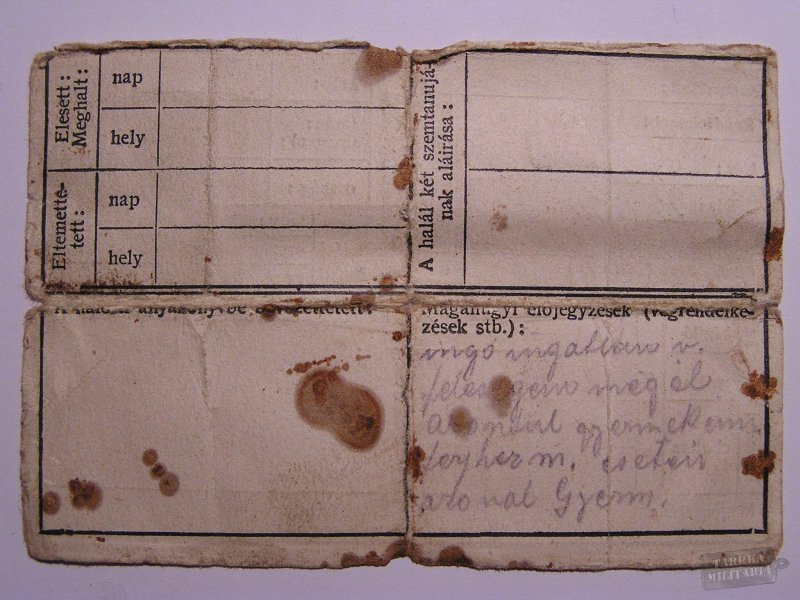 Elesett:
Meghalt:
nap
hely
Eltemette-
tett:
nap
hely
A halál két szemtanujá-
nak aláírása:
A halál anyakönyvbe bevezettetett:
Magánügyi előjegyzések (végrendelke-
zések stb.):
ingó ingatlan v.
feleségem még él
gyermekeim
férjhez m. esetén
azonal Gyerm.
TARRKA
MILITARIA